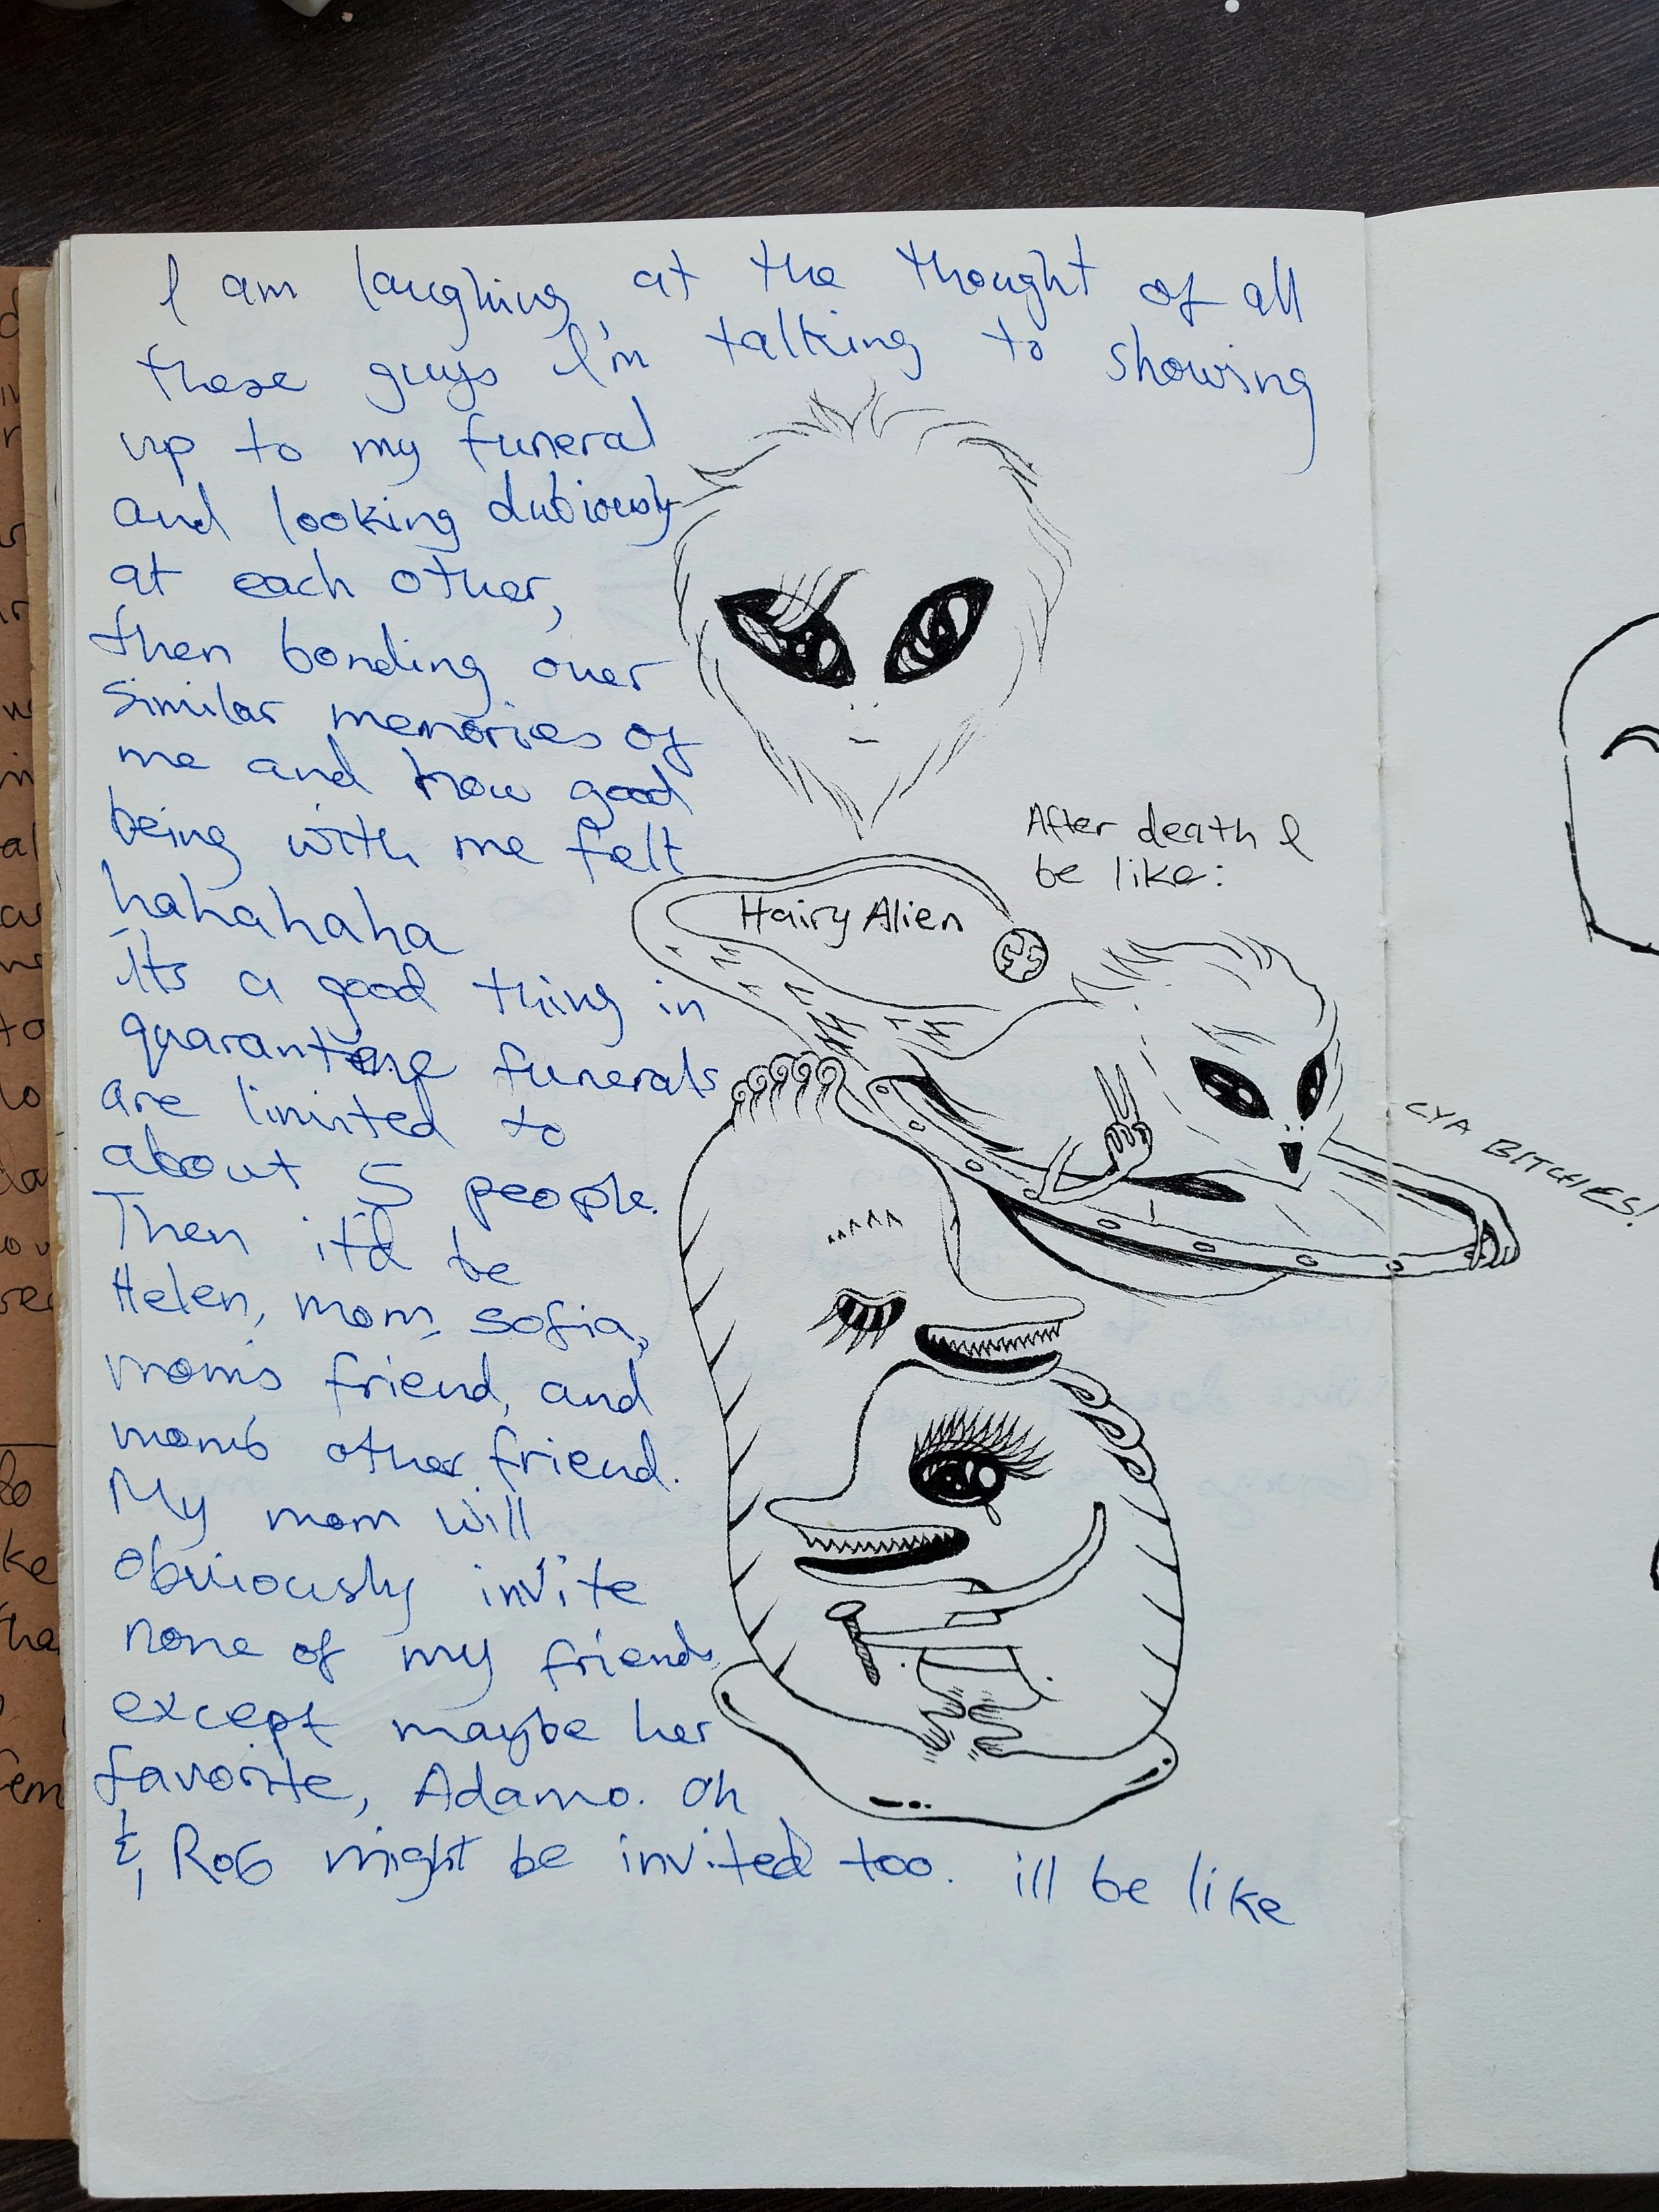 I am laughing, at the thought of all
these guys I'm talking to showing
up to my funeral
and looking dubiously
at each other,
then bonding over
similar memories of
me and how good
being with me felt
hahahaha
its a good thing in
quarantine funerals
are limited to
about 5 people.
Then it'd be
Helen, mom, sofia,
mom's friend, and
mom's other friend.
My mom will
obviously invite
none of my friends
except maybe her
favorite, Adamo. Oh
&, Rob might be invited too. ill be like
Hairy Alien
After death I
be like:
CYA BITCHES!